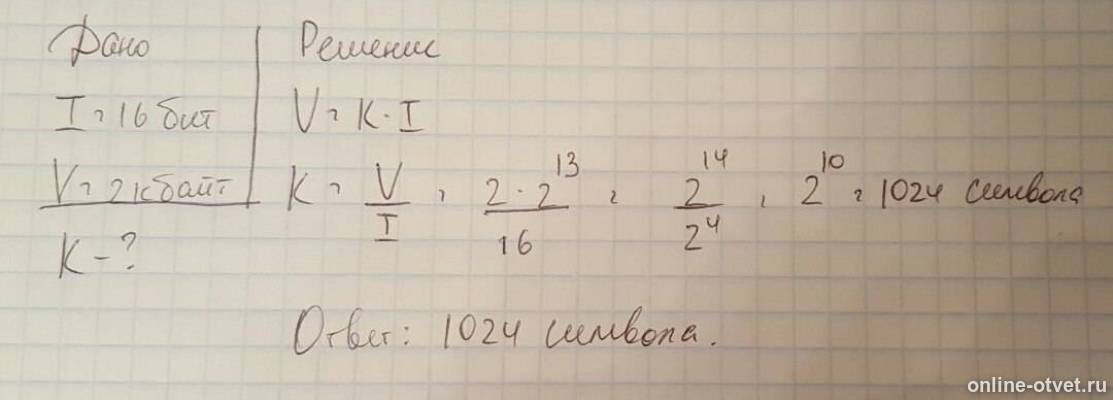 Дано
I = 16 бит
V = 2 кбайт
K - ?
Решение
V = K · I
K = V/I = 2 · 2^13 / 16 = 2^14 / 2^4 = 2^10 = 1024 символа
Ответ: 1024 символа.
online-otvet.ru